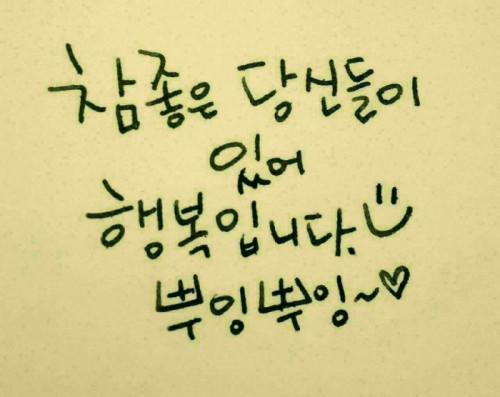 참좋은 당신들이
있어
행복입니다.
뿌잉뿌잉~♡